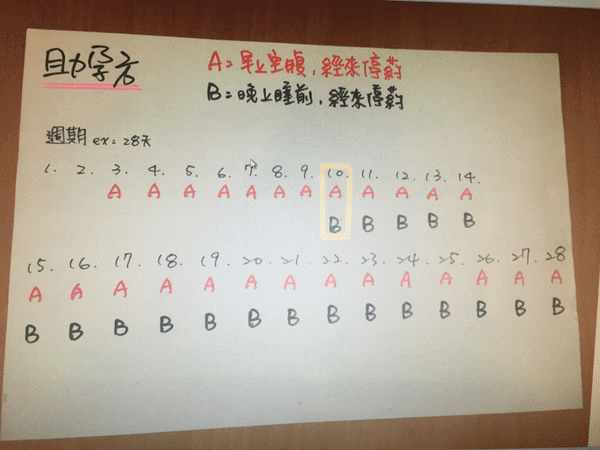 助孕方
A=早上空腹,經來停葯
B=晚上睡前,經來停葯
週期 ex=28天
1. 2. 3. 4. 5. 6. 7. 8. 9. 10. 11. 12. 13. 14.
A A A A A A A A A A A A
B B B B B
15. 16. 17. 18. 19. 20. 21. 22. 23. 24. 25. 26. 27. 28
A A A A A A A A A A A A A A
B B B B B B B B B B B B B B